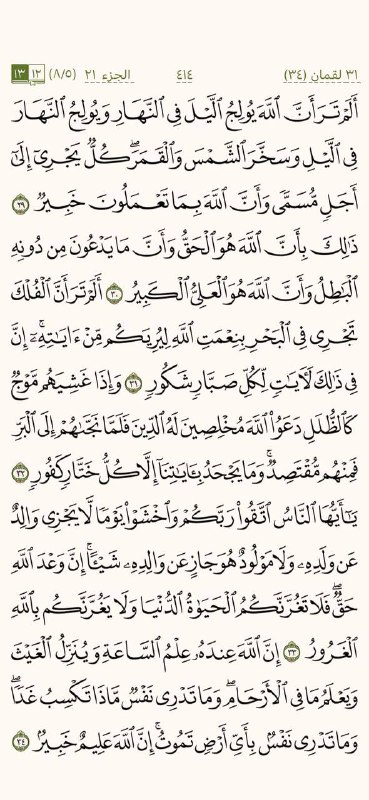 ٣١ لقمان (٣٤) ٤١٤ الجزء ٢١ (٨/٥) ١٢ ١٣
أَلَمْ تَرَ أَنَّ ٱللَّهَ يُولِجُ ٱلَّيْلَ فِى ٱلنَّهَارِ وَيُولِجُ ٱلنَّهَارَ
فِى ٱلَّيْلِ وَسَخَّرَ ٱلشَّمْسَ وَٱلْقَمَرَۖ كُلٌّ يَجْرِىٓ إِلَىٰٓ
أَجَلٍ مُّسَمًّى وَأَنَّ ٱللَّهَ بِمَا تَعْمَلُونَ خَبِيرٌ ٢٩
ذَٰلِكَ بِأَنَّ ٱللَّهَ هُوَ ٱلْحَقُّ وَأَنَّ مَا يَدْعُونَ مِن دُونِهِ
ٱلْبَٰطِلُ وَأَنَّ ٱللَّهَ هُوَ ٱلْعَلِىُّ ٱلْكَبِيرُ ٣٠ أَلَمْ تَرَ أَنَّ ٱلْفُلْكَ
تَجْرِى فِى ٱلْبَحْرِ بِنِعْمَتِ ٱللَّهِ لِيُرِيَكُم مِّنْ ءَايَٰتِهِۦٓۚ إِنَّ
فِى ذَٰلِكَ لَءَايَٰتٍ لِّكُلِّ صَبَّارٍ شَكُورٍ ٣١ وَإِذَا غَشِيَهُم مَّوْجٌ
كَٱلظُّلَلِ دَعَوُا۟ ٱللَّهَ مُخْلِصِينَ لَهُ ٱلدِّينَ فَلَمَّا نَجَّىٰهُمْ إِلَى ٱلْبَرِّ
فَمِنْهُم مُّقْتَصِدٌۚ وَمَا يَجْحَدُ بِـَٔايَٰتِنَآ إِلَّا كُلُّ خَتَّارٍ كَفُورٍ ٣٢
يَٰٓأَيُّهَا ٱلنَّاسُ ٱتَّقُوا۟ رَبَّكُمْ وَٱخْشَوْا۟ يَوْمًا لَّا يَجْزِى وَالِدٌ
عَن وَلَدِهِۦ وَلَا مَوْلُودٌ هُوَ جَازٍ عَن وَالِدِهِۦ شَيْـًٔاۚ إِنَّ وَعْدَ ٱللَّهِ
حَقٌّۖ فَلَا تَغُرَّنَّكُمُ ٱلْحَيَوٰةُ ٱلدُّنْيَا وَلَا يَغُرَّنَّكُم بِٱللَّهِ
ٱلْغَرُورُ ٣٣ إِنَّ ٱللَّهَ عِندَهُۥ عِلْمُ ٱلسَّاعَةِ وَيُنَزِّلُ ٱلْغَيْثَ
وَيَعْلَمُ مَا فِى ٱلْأَرْحَامِۖ وَمَا تَدْرِى نَفْسٌ مَّاذَا تَكْسِبُ غَدًاۖ
وَمَا تَدْرِى نَفْسٌۢ بِأَىِّ أَرْضٍ تَمُوتُۚ إِنَّ ٱللَّهَ عَلِيمٌ خَبِيرٌۢ ٣٤